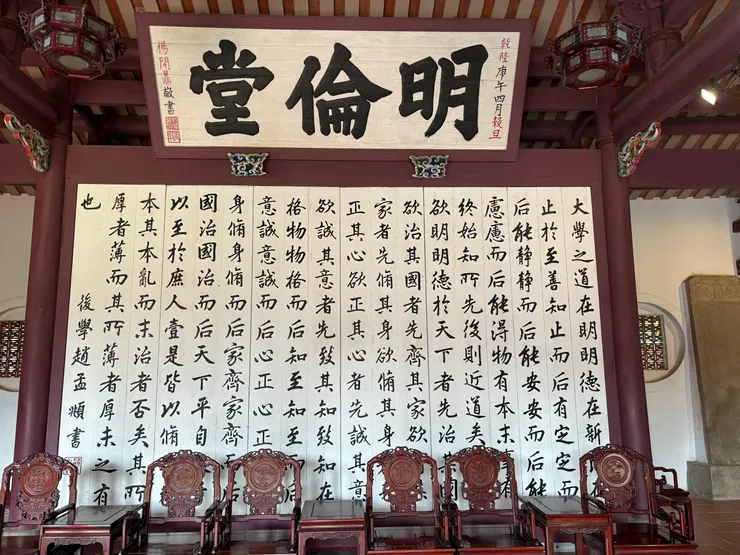 乾隆庚午四月穀旦
明倫堂
楊開鼎敬書
大學之道在明明德在新民在
止於至善知止而后有定定而
后能靜靜而后能安安而后能
慮慮而后能得物有本末事有
終始知所先後則近道矣
欲明明德於天下者先治其國
欲治其國者先齊其家欲
家者先脩其身欲脩其身
正其心欲正其心者先誠其意
欲誠其意者先致其知致知在
格物物格而后知至知至而
意誠意誠而后心正心正
身脩身脩而后家齊家齊而
國治國治而后天下平自
以至於庶人壹是皆以脩
本其本亂而末治者否矣其所
厚者薄而其所薄者厚未之有
也
後學趙孟頫書